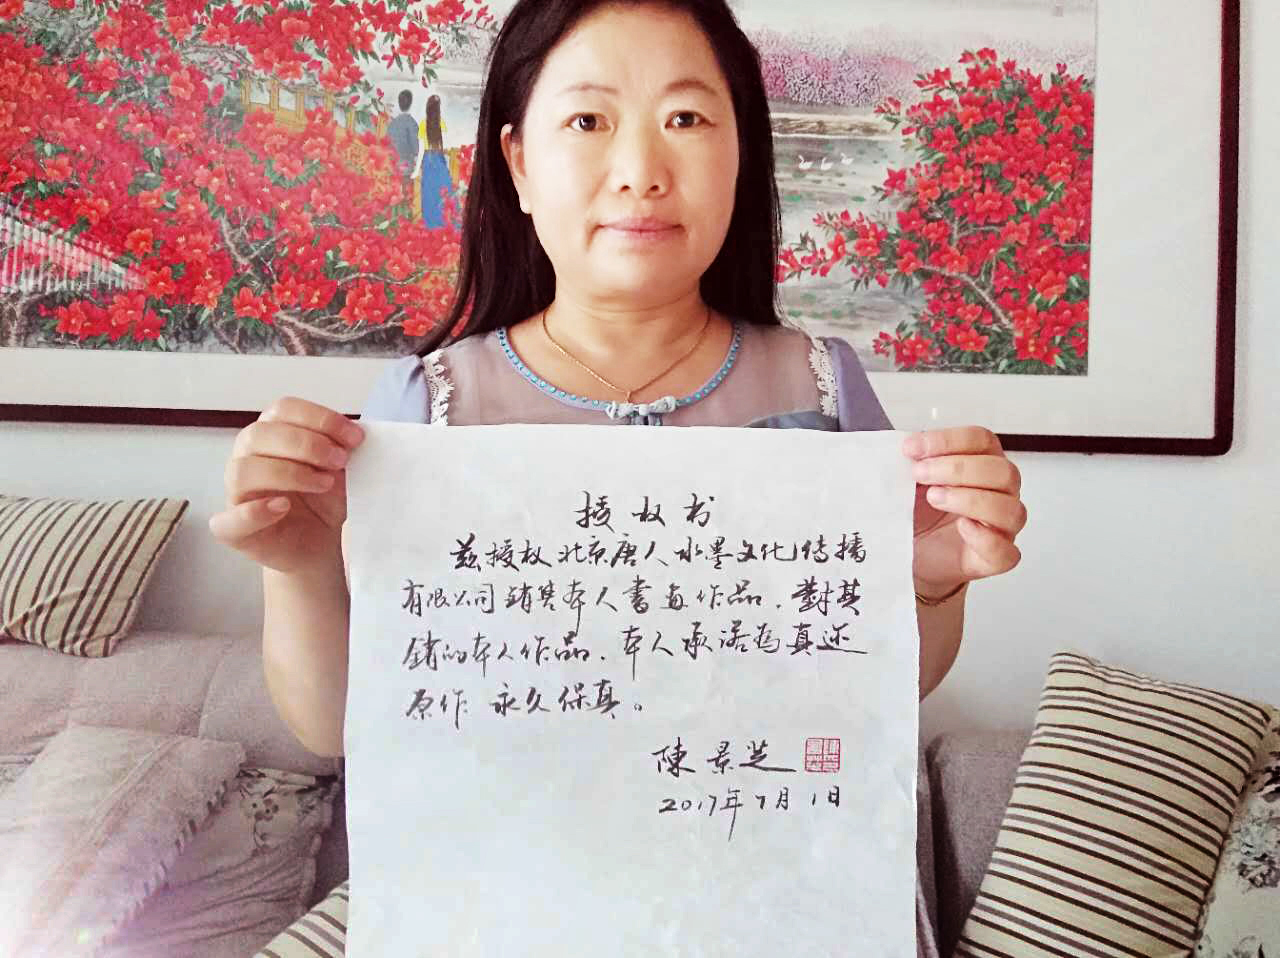 授权书
兹授权北京唐人水墨文化传播
有限公司销售本人書画作品.對其
销的本人作品.本人承诺為真迹
原作 永久保真。
陳景芝
2017年7月1日